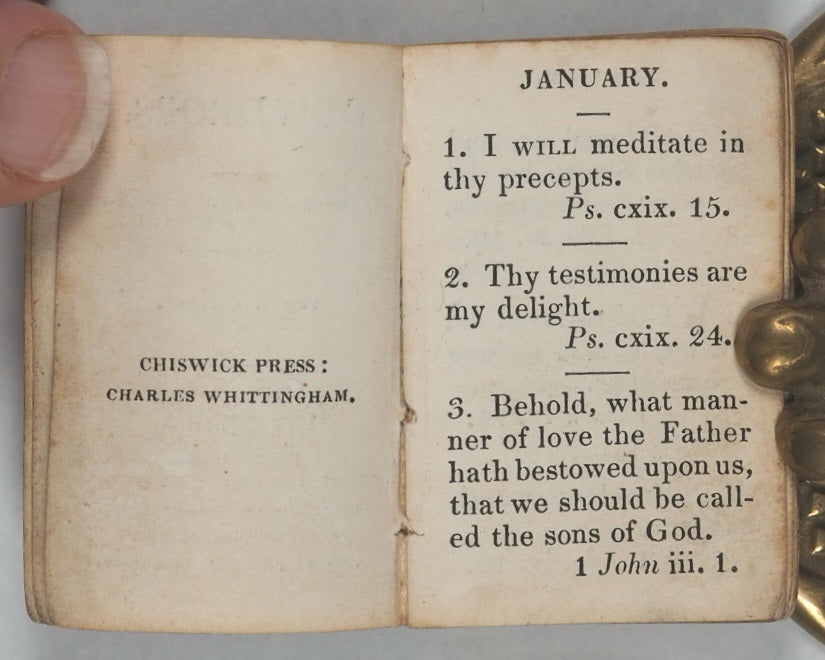 CHISWICK PRESS:
CHARLES WHITTINGHAM.
JANUARY.
1. I WILL meditate in
thy precepts.
Ps. cxix. 15.
2. Thy testimonies are
my delight.
Ps. cxix. 24.
3. Behold, what man-
ner of love the Father
hath bestowed upon us,
that we should be call-
ed the sons of God.
1 John iii. 1.